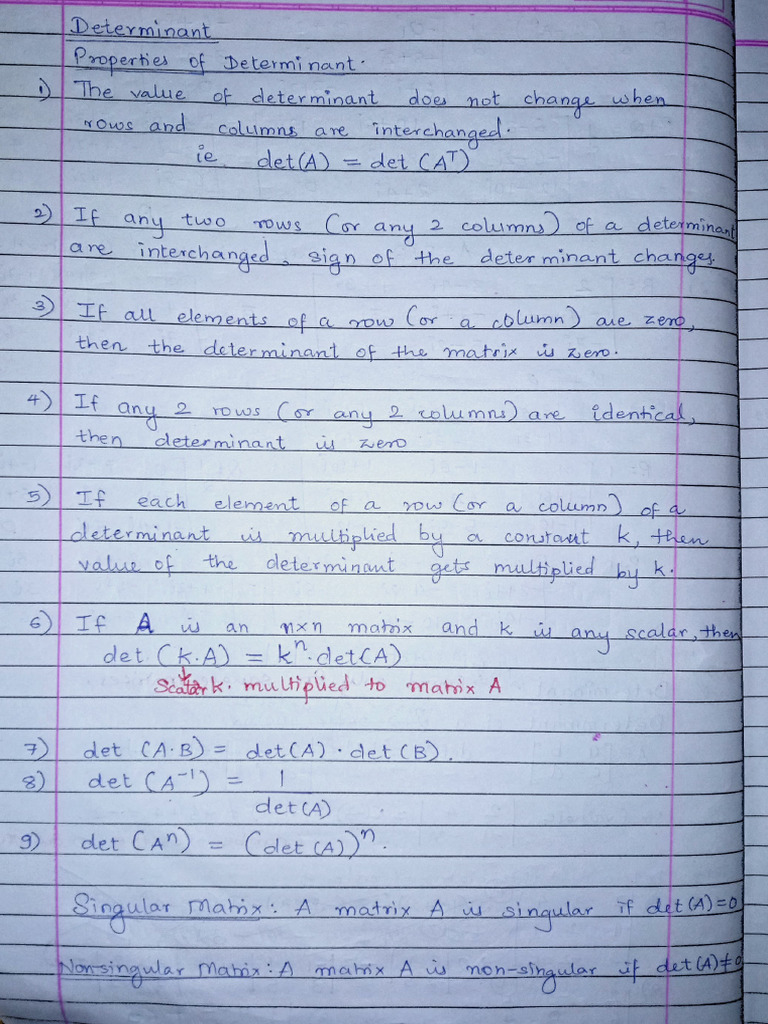 Determinant
Properties of Determinant.
1) The value of determinant does not change when
rows and columns are interchanged.
ie det(A) = det (Aᵀ)
2) If any two rows (or any 2 columns) of a determinant
are interchanged, sign of the determinant changes.
3) If all elements of a row (or a column) are zero,
then the determinant of the matrix is zero.
4) If any 2 rows (or any 2 columns) are identical,
then determinant is zero
5) If each element of a row (or a column) of a
determinant is multiplied by a constant k, then
value of the determinant gets multiplied by k.
6) If A is an n×n matrix and k is any scalar, then
det (k.A) = kⁿ.det(A)
Scalar k. multiplied to matrix A
7) det (A.B) = det(A) . det (B).
8) det (A⁻¹) = 1
det(A)
9) det (Aⁿ) = (det (A))ⁿ.
Singular Matrix: A matrix A is singular if det(A)=0
Non-singular Matrix: A matrix A is non-singular if det(A)≠0